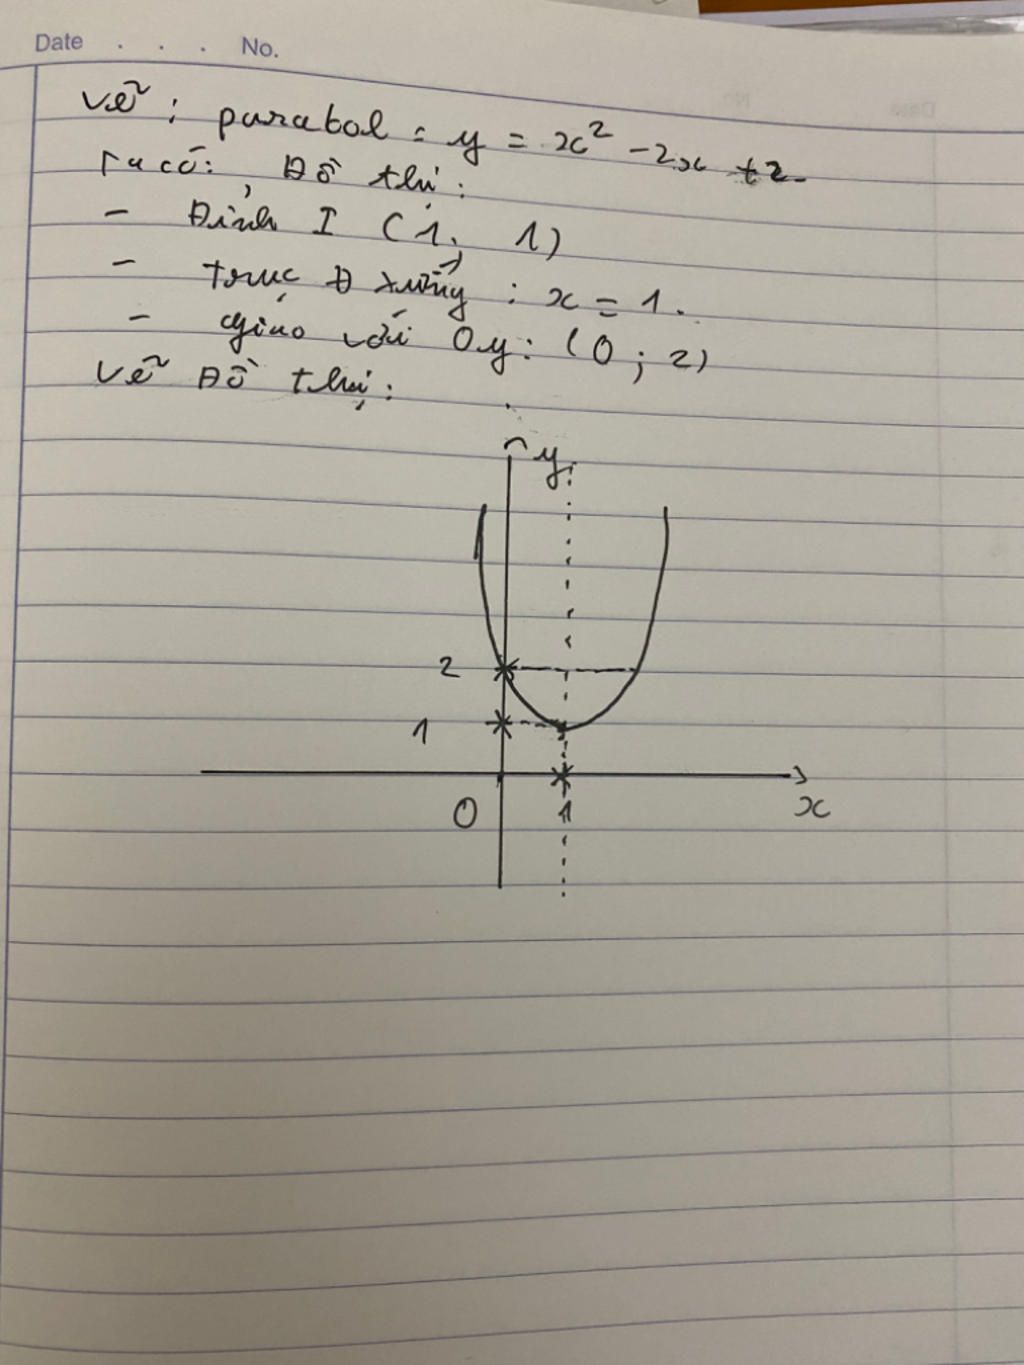 Date . . . No.
Vẽ : parabol : y = x² - 2x + 2.
Ta có: Đồ thị :
- Đỉnh I (1; 1)
- trục Đ xướng : x = 1.
- giao với Oy: (0 ; 2)
Vẽ Đồ thị :
y
2
1
O 1 x